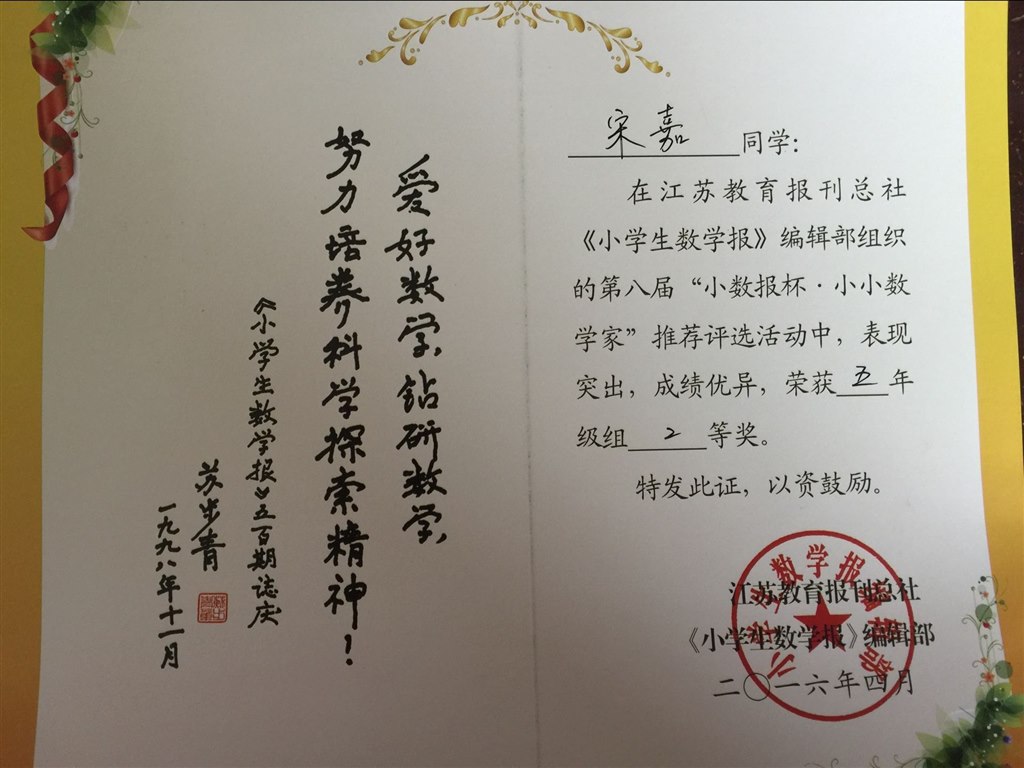 爱好数学,钻研数学,
努力培养科学探索精神!
《小学生数学报》五百期志庆
苏步青
一九九八年十一月
宋嘉同学:
在江苏教育报刊总社
《小学生数学报》编辑部组织
的第八届“小数报杯·小小数
学家”推荐评选活动中,表现
突出,成绩优异,荣获五年
级组2等奖。
特发此证,以资鼓励。
江苏教育报刊总社
《小学生数学报》编辑部
二〇一六年四月
小学生数学报编辑部